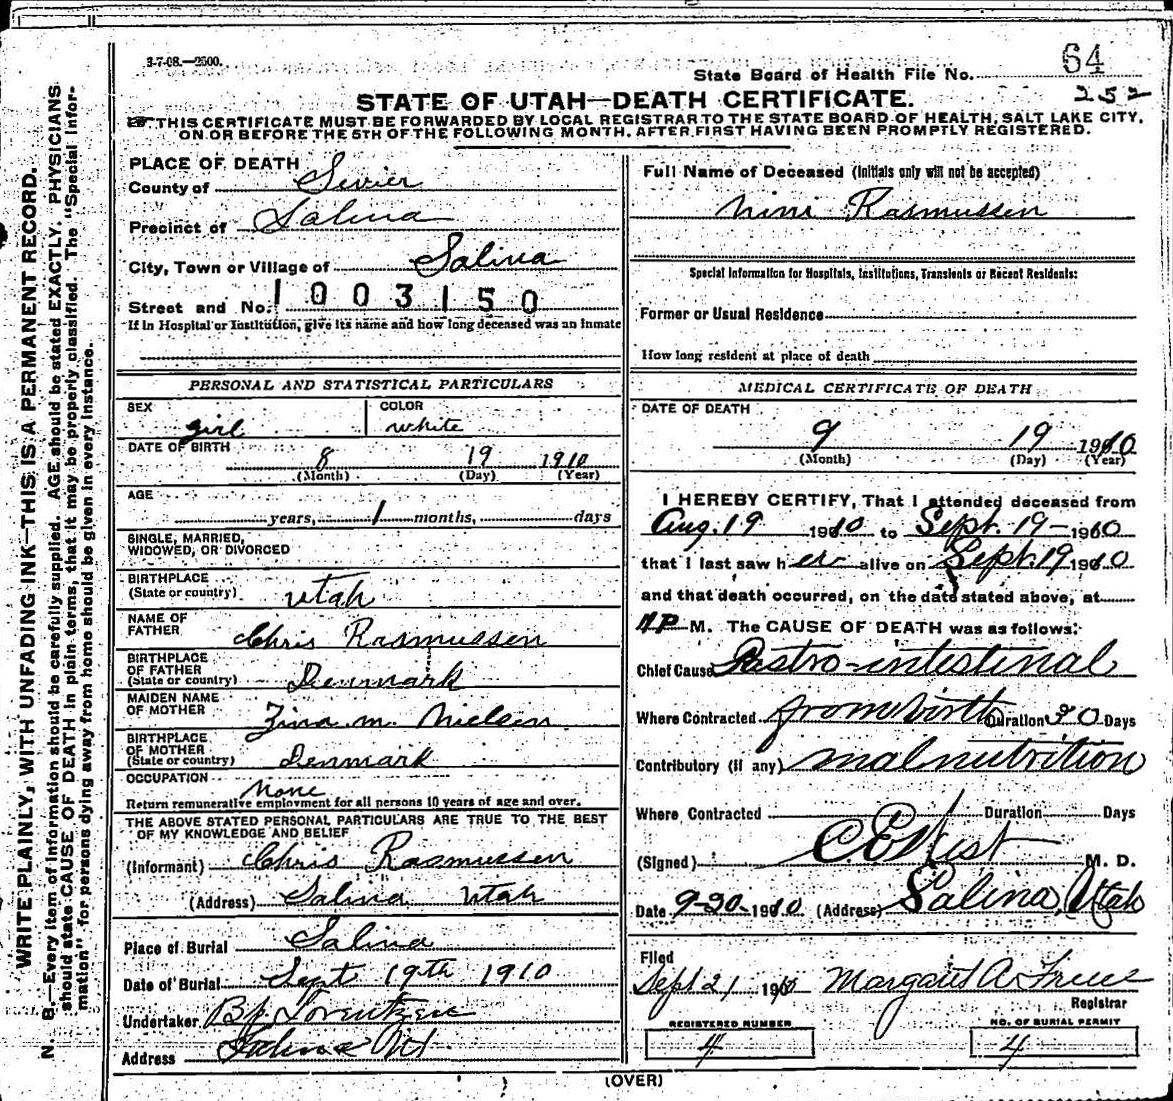 3-7-08.—2500.
State Board of Health File No. 64
252
STATE OF UTAH—DEATH CERTIFICATE.
THIS CERTIFICATE MUST BE FORWARDED BY LOCAL REGISTRAR TO THE STATE BOARD OF HEALTH, SALT LAKE CITY,
ON OR BEFORE THE 5TH OF THE FOLLOWING MONTH, AFTER FIRST HAVING BEEN PROMPTLY REGISTERED.
WRITE PLAINLY, WITH UNFADING INK—THIS IS A PERMANENT RECORD.
N. B. Every item of information should be carefully supplied. AGE should be stated EXACTLY. PHYSICIANS
should state CAUSE OF DEATH in plain terms, that it may be properly classified. The "Special Infor-
mation" for persons dying away from home should be given in every instance.
PLACE OF DEATH
County of Sevier
Precinct of Salina
City, Town or Village of Salina
Street and No. 1003150
If in Hospital or Institution, give its name and how long deceased was an inmate
PERSONAL AND STATISTICAL PARTICULARS
SEX girl COLOR white
DATE OF BIRTH 8 19 1910
(Month) (Day) (Year)
AGE
years, 1 months, days
SINGLE, MARRIED,
WIDOWED, OR DIVORCED
BIRTHPLACE
(State or country) Utah
NAME OF
FATHER Chris Rasmussen
BIRTHPLACE
OF FATHER
(State or country) Denmark
MAIDEN NAME
OF MOTHER Zina m. Nielsen
BIRTHPLACE
OF MOTHER
(State or country) Denmark
OCCUPATION None
Return remunerative employment for all persons 10 years of age and over.
THE ABOVE STATED PERSONAL PARTICULARS ARE TRUE TO THE BEST
OF MY KNOWLEDGE AND BELIEF
(Informant) Chris Rasmussen
(Address) Salina Utah
Place of Burial Salina
Date of Burial Sept 19th 1910
Undertaker Bp Lorentzen
Address Salina Ut.
Full Name of Deceased (Initials only will not be accepted)
Nini Rasmussen
Special Information for Hospitals, Institutions, Transients or Recent Residents:
Former or Usual Residence
How long resident at place of death
MEDICAL CERTIFICATE OF DEATH
DATE OF DEATH
9 19 1910
(Month) (Day) (Year)
I HEREBY CERTIFY, That I attended deceased from
Aug. 19 1910 to Sept. 19 - 1910
that I last saw h er alive on Sept. 19 1910
and that death occurred, on the date stated above, at
M. The CAUSE OF DEATH was as follows:
Chief Cause Gastro-intestinal
Where Contracted from birth Duration 30 Days
Contributory (if any) malnutrition
Where Contracted Duration Days
(Signed) C. E. West M. D.
Date 9-20-1910. (Address) Salina, Utah
Filed
Sept 21 1910 Margaret A.
Registrar
REGISTERED NUMBER
4
NO. OF BURIAL PERMIT
4
(OVER)